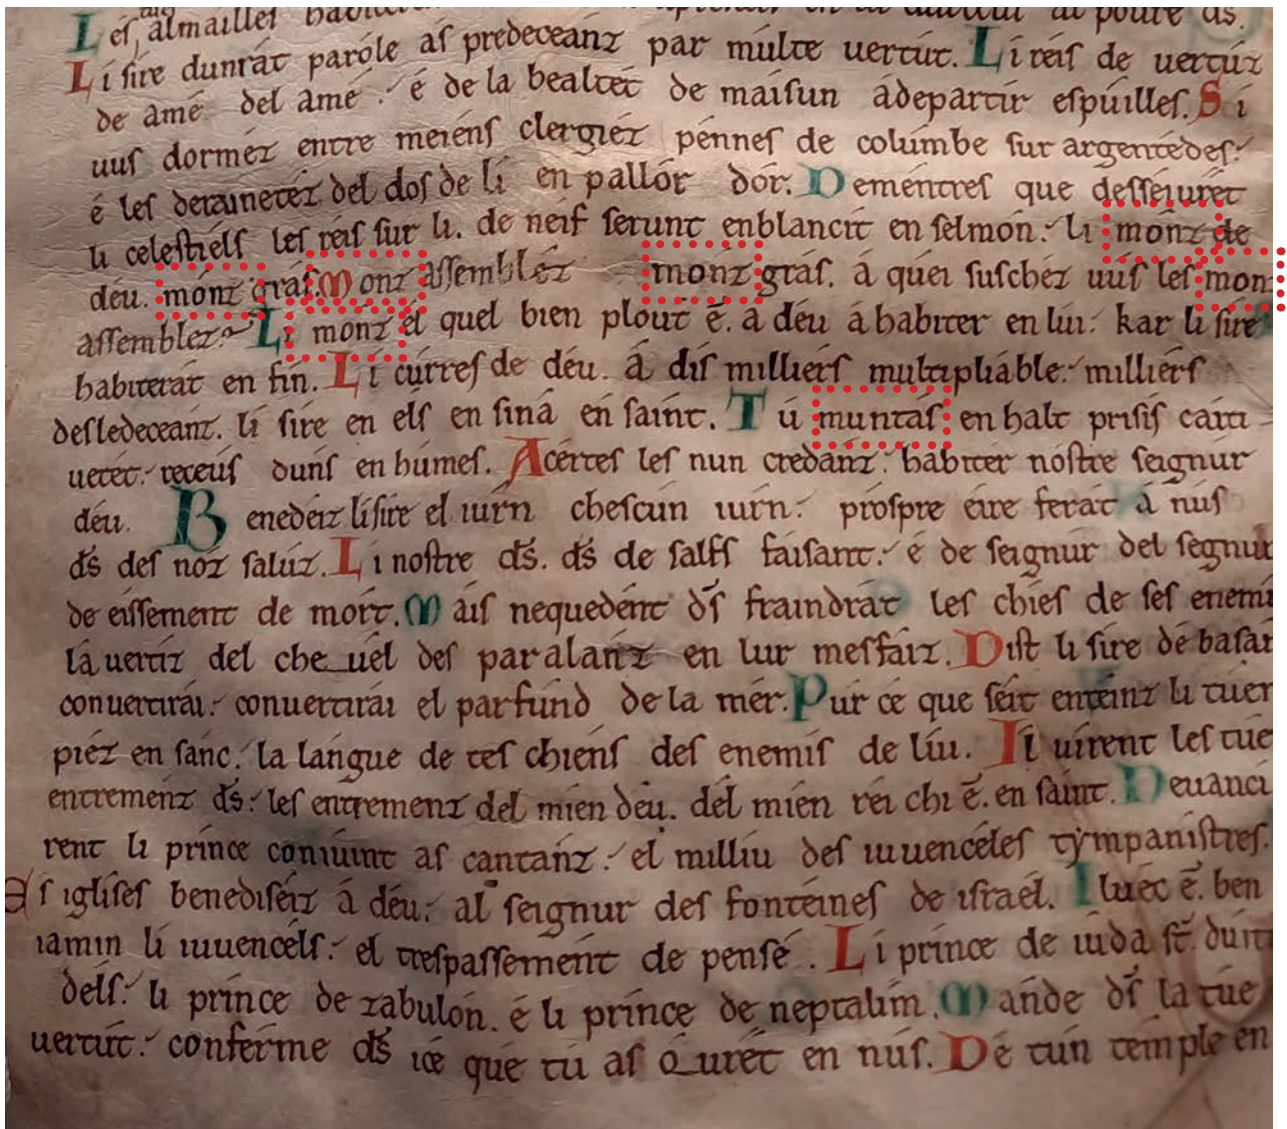 Leſ almailleſ habiter
Li ſire dunrát paróle aſ predeceanz par múlte uertút. Li reiſ de uertúz
de amé del amé. é de la bealtét de maiſun ádepartír eſpúilleſ. Si
uuſ dorméz entre meiénſ clergiéz pénneſ de colúmbe ſur argentédeſ:
é leſ derainetéz del doſ de li en pallór dór. Dementreſ que deſſeiurét
li celeſtiélſ leſ reiſ ſur li. de neif ſerunt enblanciſ en ſelmón: li mónz de
déu. mónz gráſ Monz aſſembléz mónz gráſ. á quei ſuſchéz uuſ leſ mon
aſſembléz. Li monz el quel bien plout ē. a déu á habiter en lúi: kar li ſire
habiterát en fin. Li cúrreſ de déu. á diſ milliérſ multipliáble: milliérſ
deſledeceánz. li ſire en elſ en ſiná en ſaint. Tú muntáſ en halt priſiſ caiti
uetét: receúſ dunſ en húmeſ. Acérteſ leſ nun credánz: habitér noſtre ſeignur
déu. Benedéiz li ſire el iurn cheſcun iurn: proſpre éire ferát á nuſ
dſ deſ noz ſalúz. Li noſtre dſ. dſ de ſalfſ faiſant: é de ſeignur del ſegnur
de eiſſement de mort. Maiſ nequedént dſ fraindrát leſ chieſ de ſeſ enemi
lá uertiz del cheuél deſ paralánz en lur meſfaiz. Diſt li ſire de baſan
conuertirái: conuertirái el parfund de la mér: Pur cé que ſéit enteinz li tuen
piéz en ſanc: la lángue de teſ chienſ deſ enemiſ de lúi. Il uirent leſ tue
entremenz dſ: leſ entremenz del mien déu. del mién réi chi ē. en ſaint. Deuanci
rent li prince coniuint aſ cantánz: el milliu deſ iuuencéleſ tympaniſtreſ.
Eſ igliſeſ benediſéiz á déu: al ſeignur deſ fonteineſ de iſraél. Iluec ē. ben
iamin li iuuencélſ: el treſpaſſemént de penſé. Li prince de iúda ſt. duit
delſ: li prince de zabulón. é li prince de neptalim. Mánde dſ la túe
uertút: conférme dſ icé que tú aſ Ourét en nuſ. De tun temple en